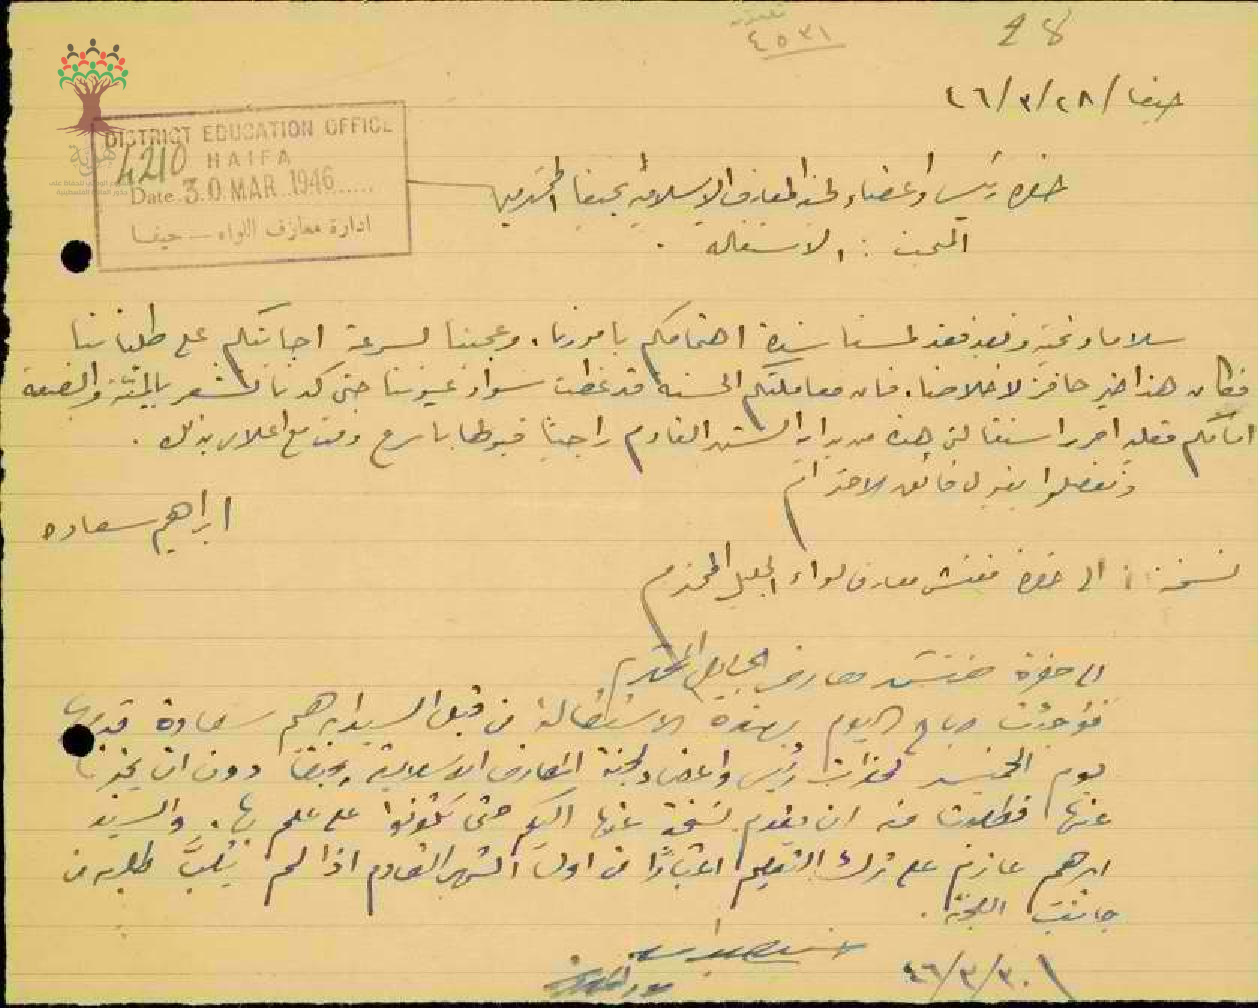 ٤٥٣١
28
حيفا / ٢٨/٣/٤٦
DISTRICT EDUCATION OFFICE
4210
HAIFA
Date 30 MAR 1946
ادارة معارف اللواء — حيفا
هوية
حضرة رئيس واعضاء لجنة المعارف الاسلامية بحيفا المحترمين
المبحث : الاستقالة .
سلاما وتحية وبعد فقد لمسنا شدة اهتمامكم بامورنا . وعجبنا لسرعة اجابتكم على طلباتنا
فكان هذا خير حافز لاخلاصنا . فان معاملتكم الحسنة قد غطت سواد عيوننا حتى كدنا نشعر بالمتة والضعة
امامكم استقالتي هذه من بداية الشهر القادم راجيا قبولها باسرع وقت مع اعلامي بذلك .
وتفضلوا بقبول فائق الاحترام
ابراهيم سعاده
نسخة : الى حضرة مفتش معارف لواء الجليل المحترم
الى حضرة مفتش معارف الجليل المحترم
فوجئت صباح اليوم بهذه الاستقالة من قبل السيد ابرهيم سعادة قدمها
يوم الخميس لحضرات رئيس واعضاء لجنة المعارف الاسلامية بحيفا دون ان يخبرنا
عنها فطلبت منه ان يقدم نسخة عنها اليكم حتى تكونوا على علم بها . والسيد
ابرهيم عازم على ترك التعليم اعتبارا من اول الشهر القادم اذا لم يلب طلبه من
جانب اللجنة .
٣٠/٣/٤٦